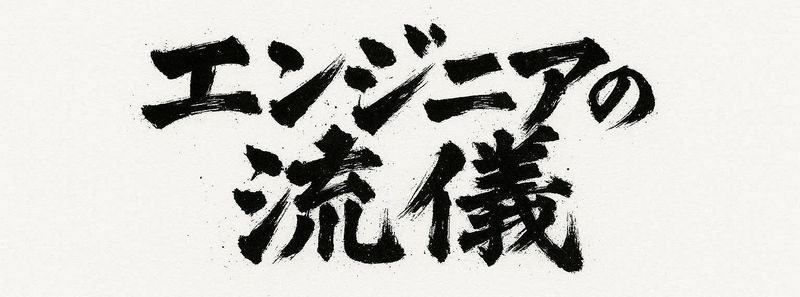 エンジニアの
流儀